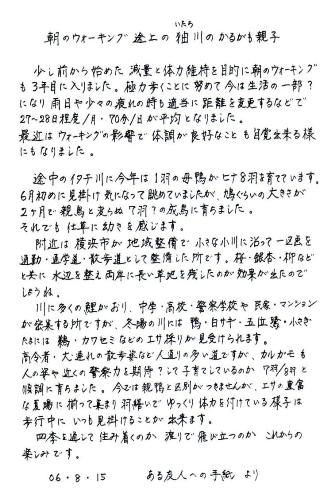 朝のウォーキング途上の 狆川のかるがも親子
いたち
少し前から始めた 減量と体力維持を目的に朝のウォーキング
も3年目に入りました。極力歩くことに努めて今は生活の一部?
になり 雨日や少々の疲れの時も適当に距離を変更するなどで
27〜28日程度/月・70分/日が平均となりました。
最近は ウォーキングの影響で体調が良好なことも自覚出来る様
にもなりました。
途中のイタチ川に今年は1羽の母鴨がヒナ8羽を育てています。
6月初めに見掛け気になって眺めていましたが、鳩ぐらいの大きさが
2ケ月で親鳥と変らぬ7羽?の成鳥に育ちました。
それでも仕草に幼さを感じます。
附近は横浜市が地域整備で小さな小川に沿って一辺を
通勤・通学道・散歩道として整備した所です。桜・銀杏・柳など
と共に水辺を整え両岸に長い草地を残したのが効果が出たので
しょうね。
川に多くの鯉がおり、中学・高校・警察学校や民家・マンション
が密集する所ですが、冬場の川には鴨・白サギ・五位鷺・小さぎ
たまには 鵜・カワセミなどのエサ採りが見受けられます。
高令者・犬連れの散歩姿など人通りの多い道ですが、カルガモも
人の姿や近くの警察力を期待?して子育てしているのか 7羽/8羽と
順調に育ちました。今では親鴨と区別がつきませんが、エサの豊富
な夏場に揃って集まり羽繕いでゆっくり体力を付けている様子は
歩行中にいつも見掛けることが出来ます。
四季を通して住み着くのか 渡りで飛び立つのか これからの
楽しみです。
06・8・15 ある友人への手紙 より